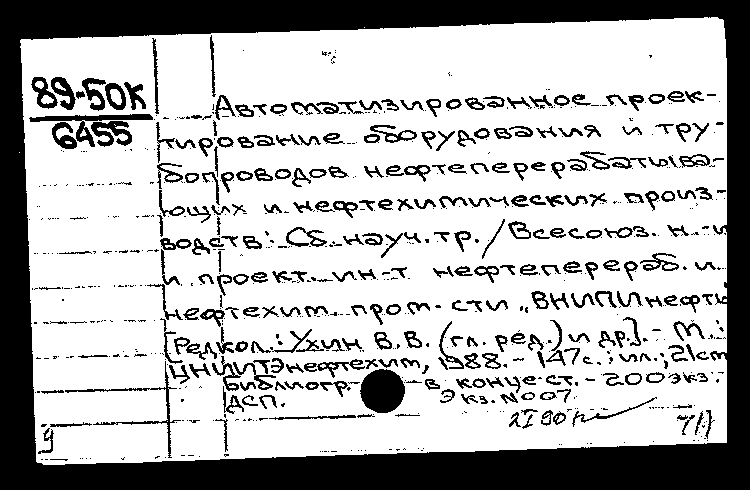 89-50К
6455
Автоматизированное проек-
тирование оборудования и тру-
бопроводов нефтеперерабатыва-
ющих и нефтехимических произ-
водств: Сб. науч. тр. / Всесоюз. н.-и
и проект. ин-т нефтеперераб. и
нефтехим. пром-сти „ВНИПИнефть
[Редкол.: Ухин В.В. (гл. ред.) и др.]. - М.:
ЦНИИТЭнефтехим, 1988. - 147с.: ил.; 21см
Библиогр. в конце ст. - 200экз.
ДСП. Экз. №007
2I90
9